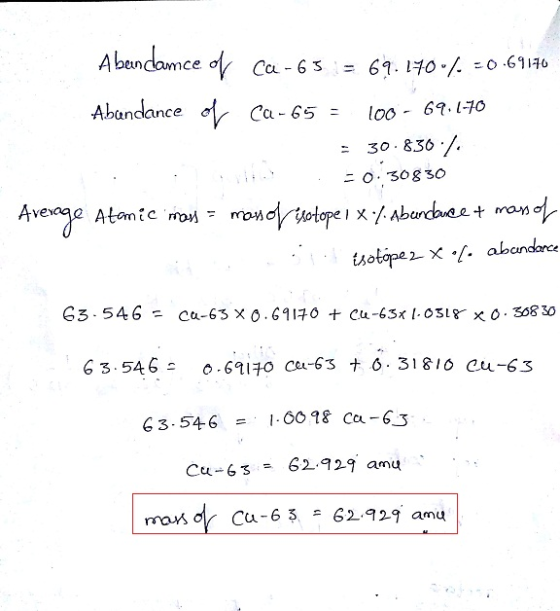 Abundamce of Cu-63 = 69.170 % = 0.69170
Abundance of Cu-65 = 100 - 69.170
= 30.830 %
= 0.30830
Average Atomic mass = mass of isotope 1 x % Abundance + mass of
isotope 2 x % abundance
63.546 = Cu-63 x 0.69170 + Cu-63 x 1.0318 x 0.30830
63.546 = 0.69170 Cu-63 + 0.31810 Cu-63
63.546 = 1.0098 Cu-63
Cu-63 = 62.929 amu
mass of Cu-63 = 62.929 amu